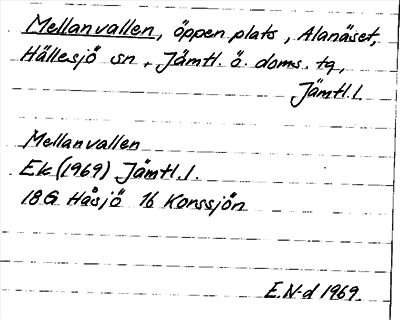 Mellanvallen, öppen plats, Alanäset,
Hällesjö sn, Jämtl. ö. doms. tg,
Jämtl. l.
Mellanvallen
Ek (1969) Jämtl. l.
18G Håsjö 16 Konssjön
E. N-d 1969.